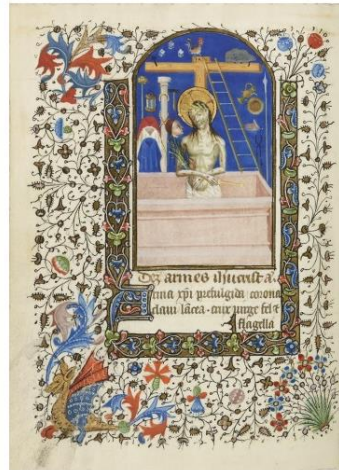 Dez armes ihucrist a.
Arma xpi prefulgida corona
claui lācea. crux purge fel &
flagella